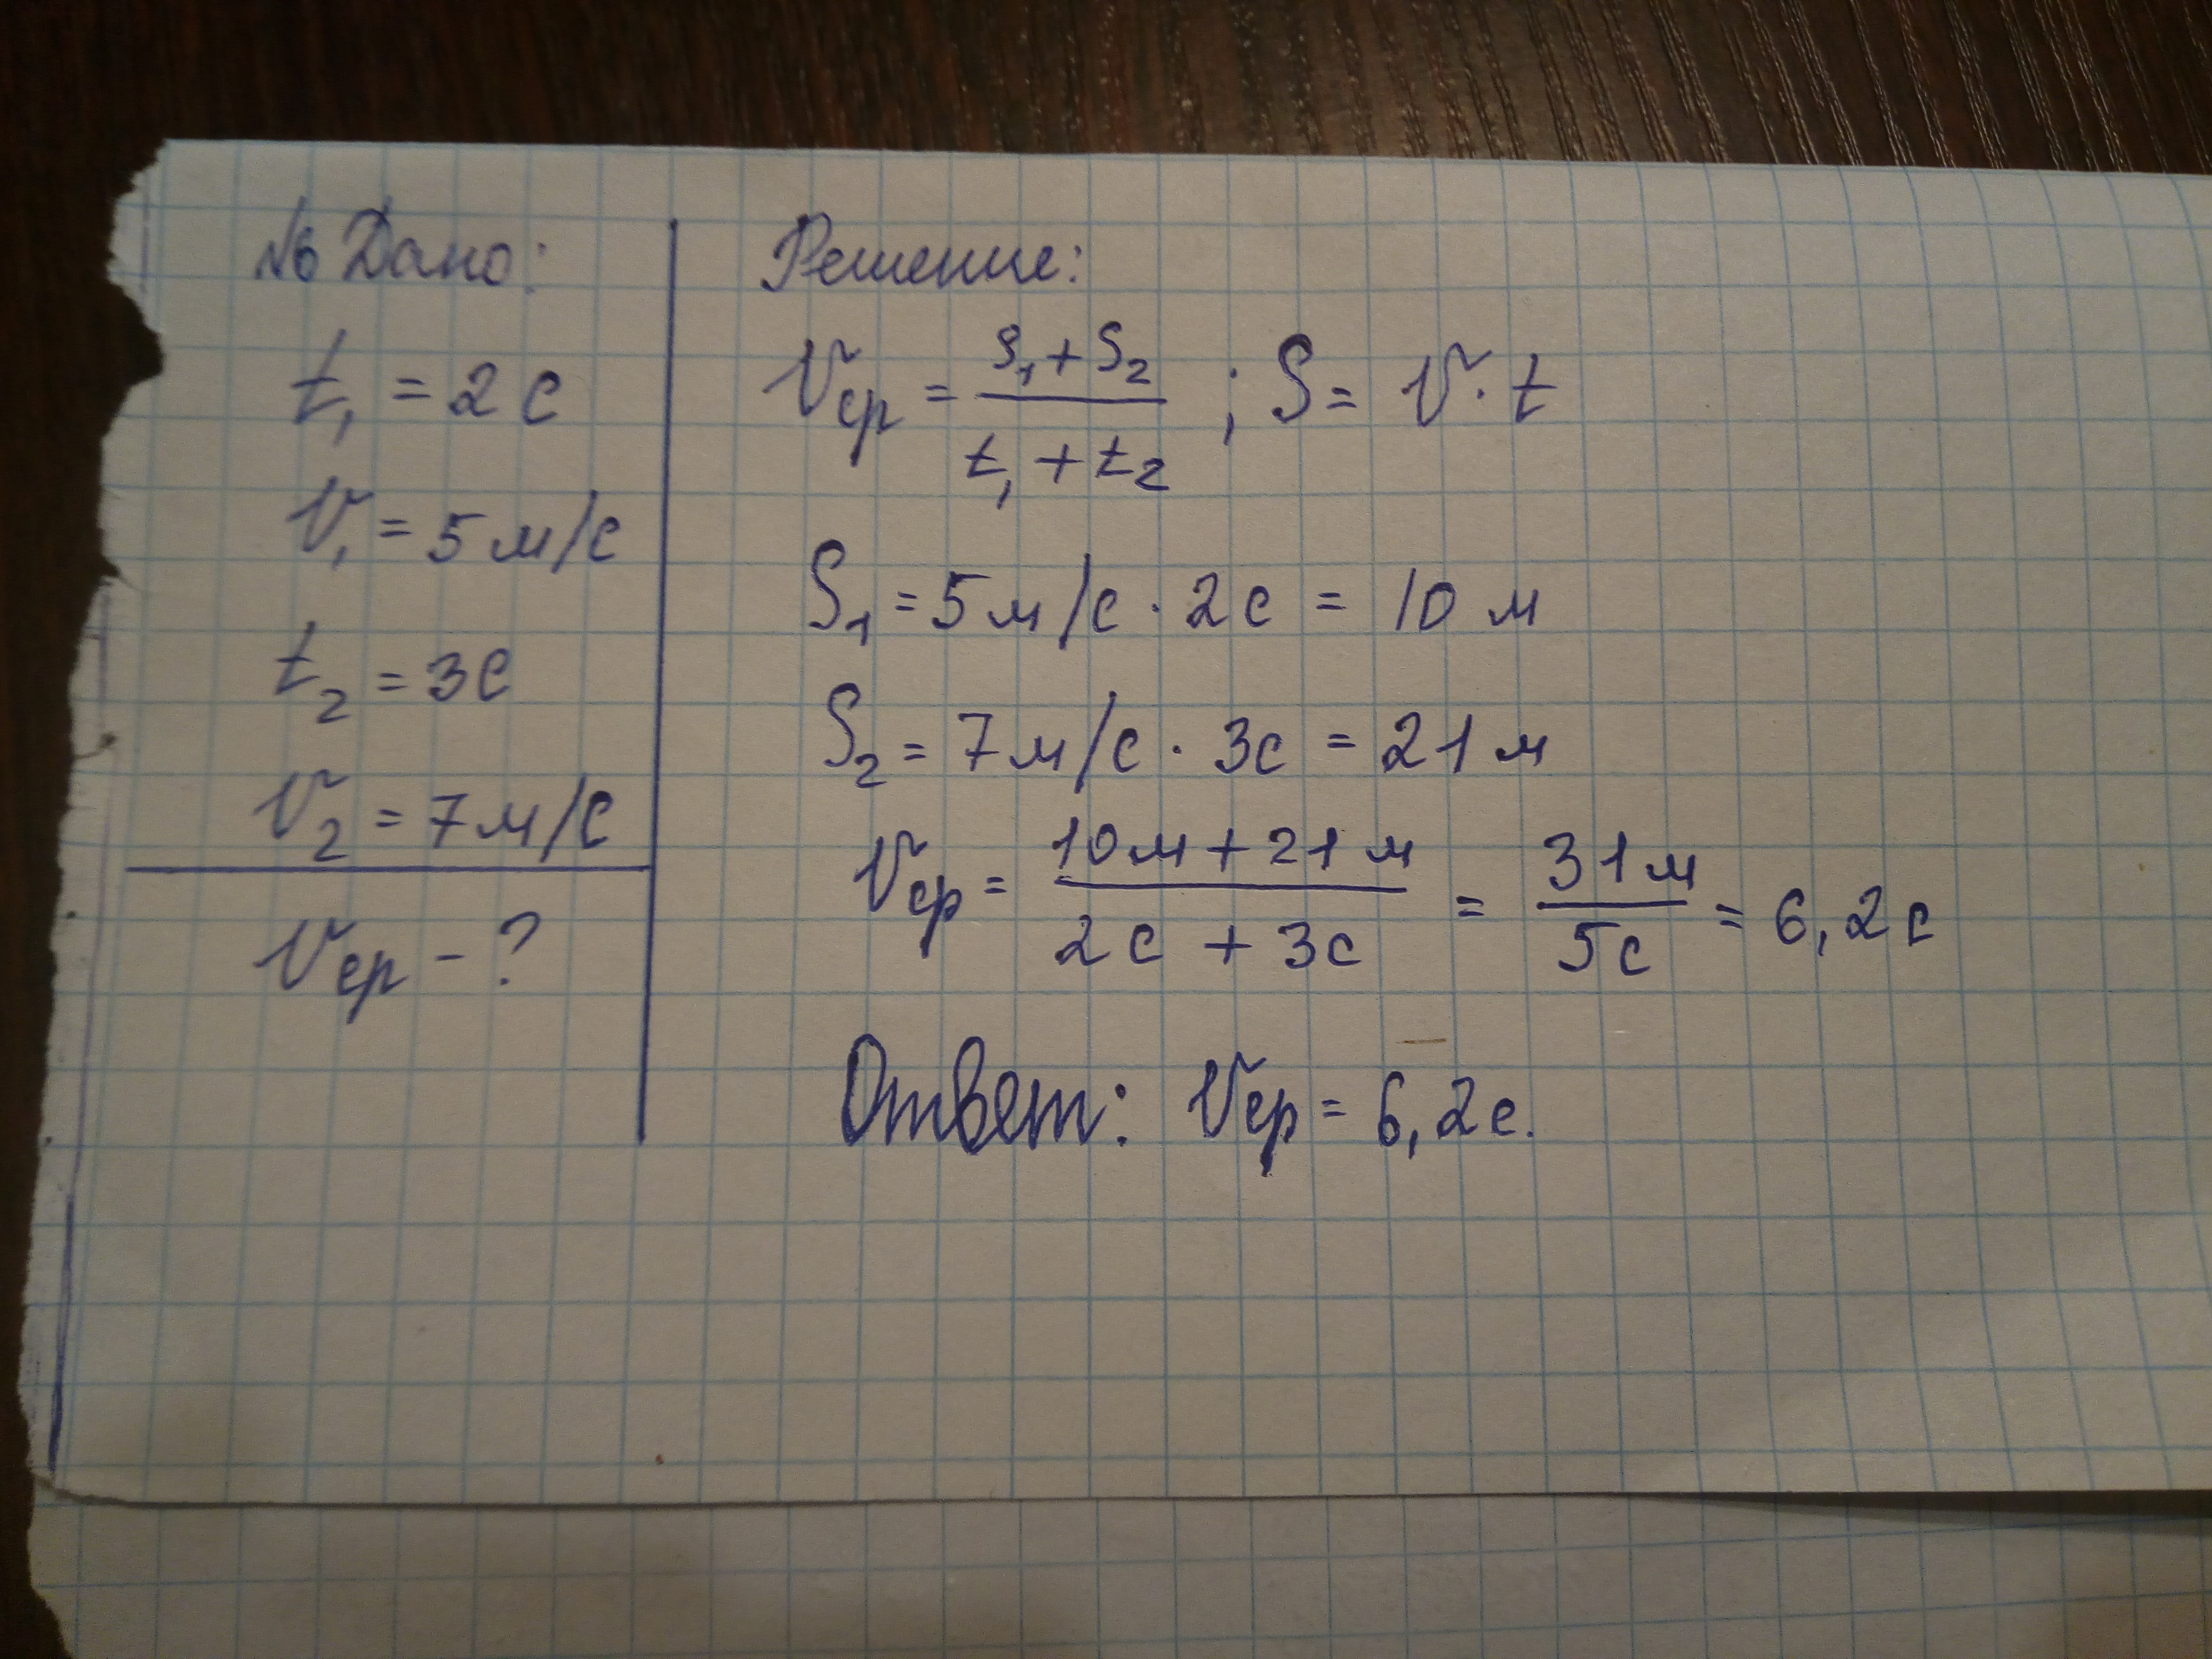 №6 Дано:
t₁ = 2 с
V₁ = 5 м/с
t₂ = 3с
V₂ = 7 м/с
Vср - ?
Решение:
Vср = (S₁ + S₂)/(t₁ + t₂) ; S = V · t
S₁ = 5 м/с · 2 с = 10 м
S₂ = 7 м/с · 3с = 21 м
Vср = (10 м + 21 м)/(2с + 3с) = 31 м/5с = 6,2 с
Ответ: Vср = 6,2 с.